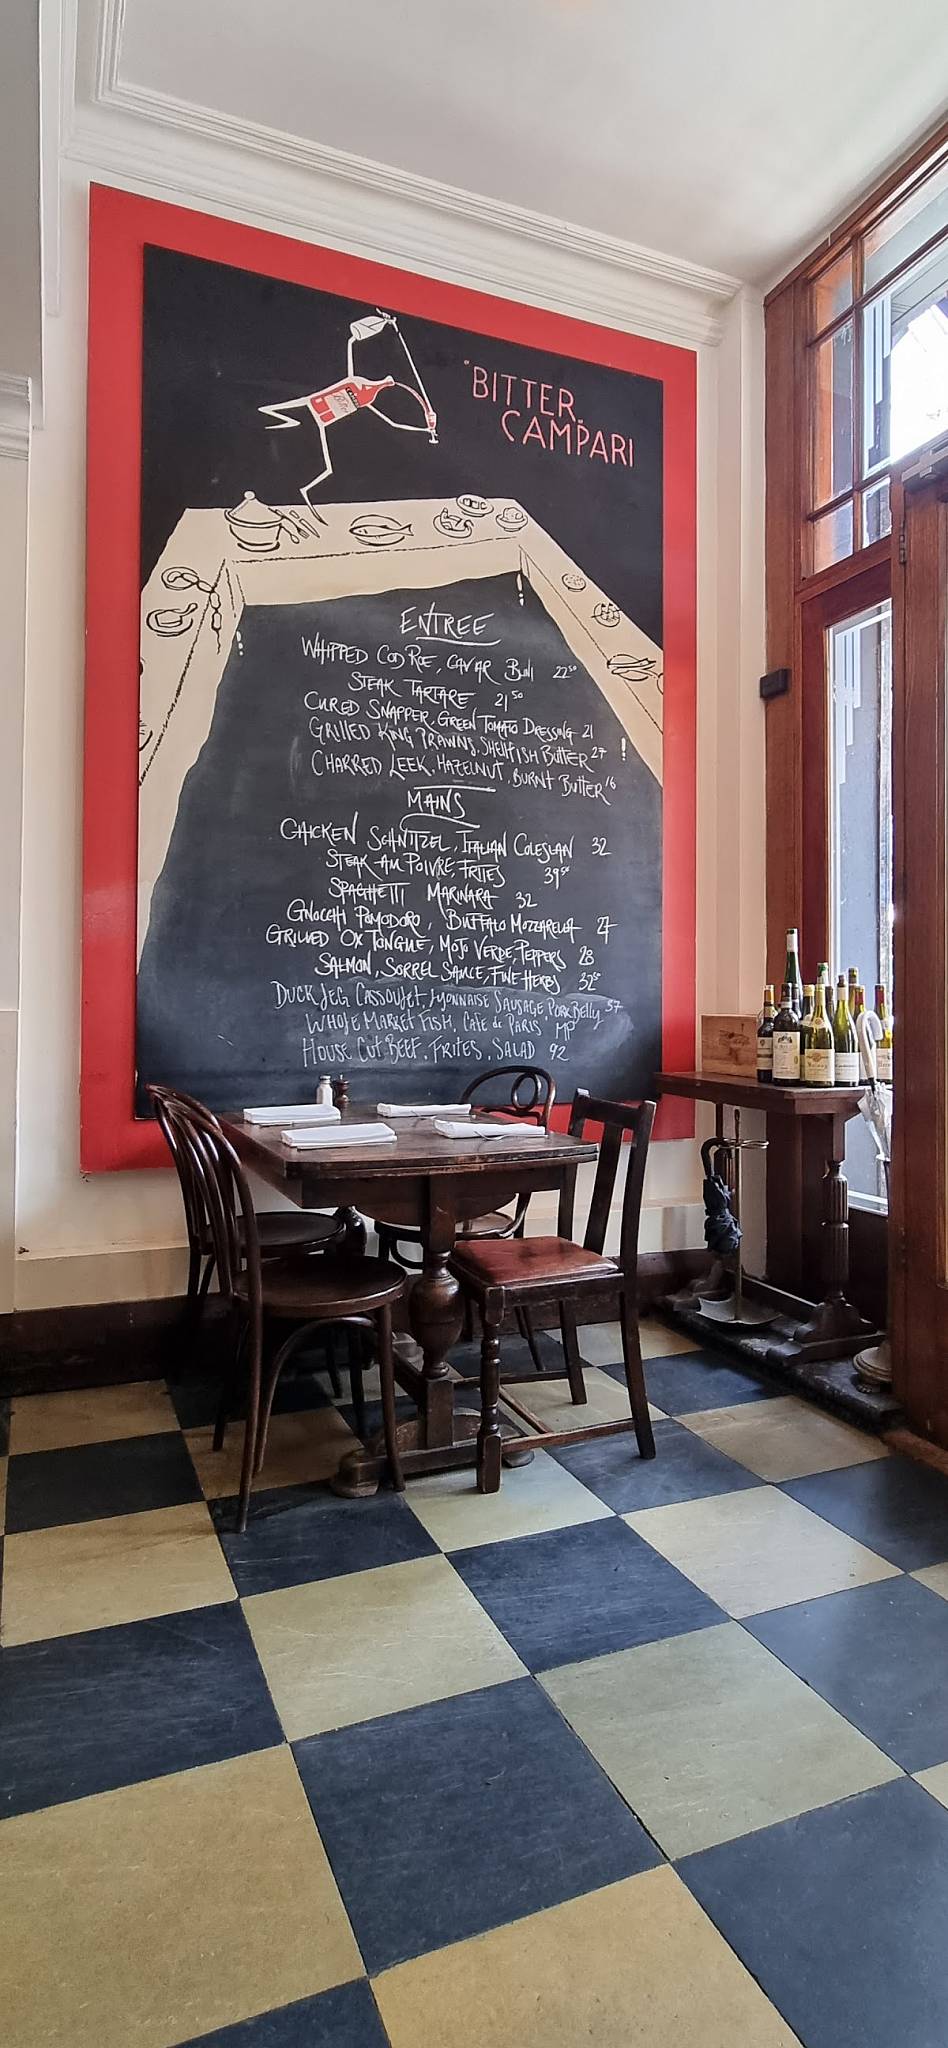 BITTER
CAMPARI
ENTREE
WHIPPED COD ROE, CAVIAR BLINI 22⁵⁰
STEAK TARTARE 21⁵⁰
CURED SNAPPER, GREEN TOMATO DRESSING 21
GRILLED KING PRAWNS, SHELLFISH BUTTER 27
CHARRED LEEK, HAZELNUT, BURNT BUTTER 16
MAINS
CHICKEN SCHNITZEL, ITALIAN COLESLAW 32
STEAK AM POIVRE, FRITES 39⁵⁰
SPAGHETTI MARINARA 32
GNOCCHI POMODORO, BUFFALO MOZZARELLA 27
GRILLED OX TONGUE, MOJO VERDE, PEPPERS 28
SALMON, SORREL SAUCE, FINE HERBS 32⁵⁰
DUCK LEG CASSOULET, LYONNAISE SAUSAGE, PORK BELLY 37
WHOLE MARKET FISH, CAFE de PARIS MP
HOUSE CUT BEEF, FRITES, SALAD 92